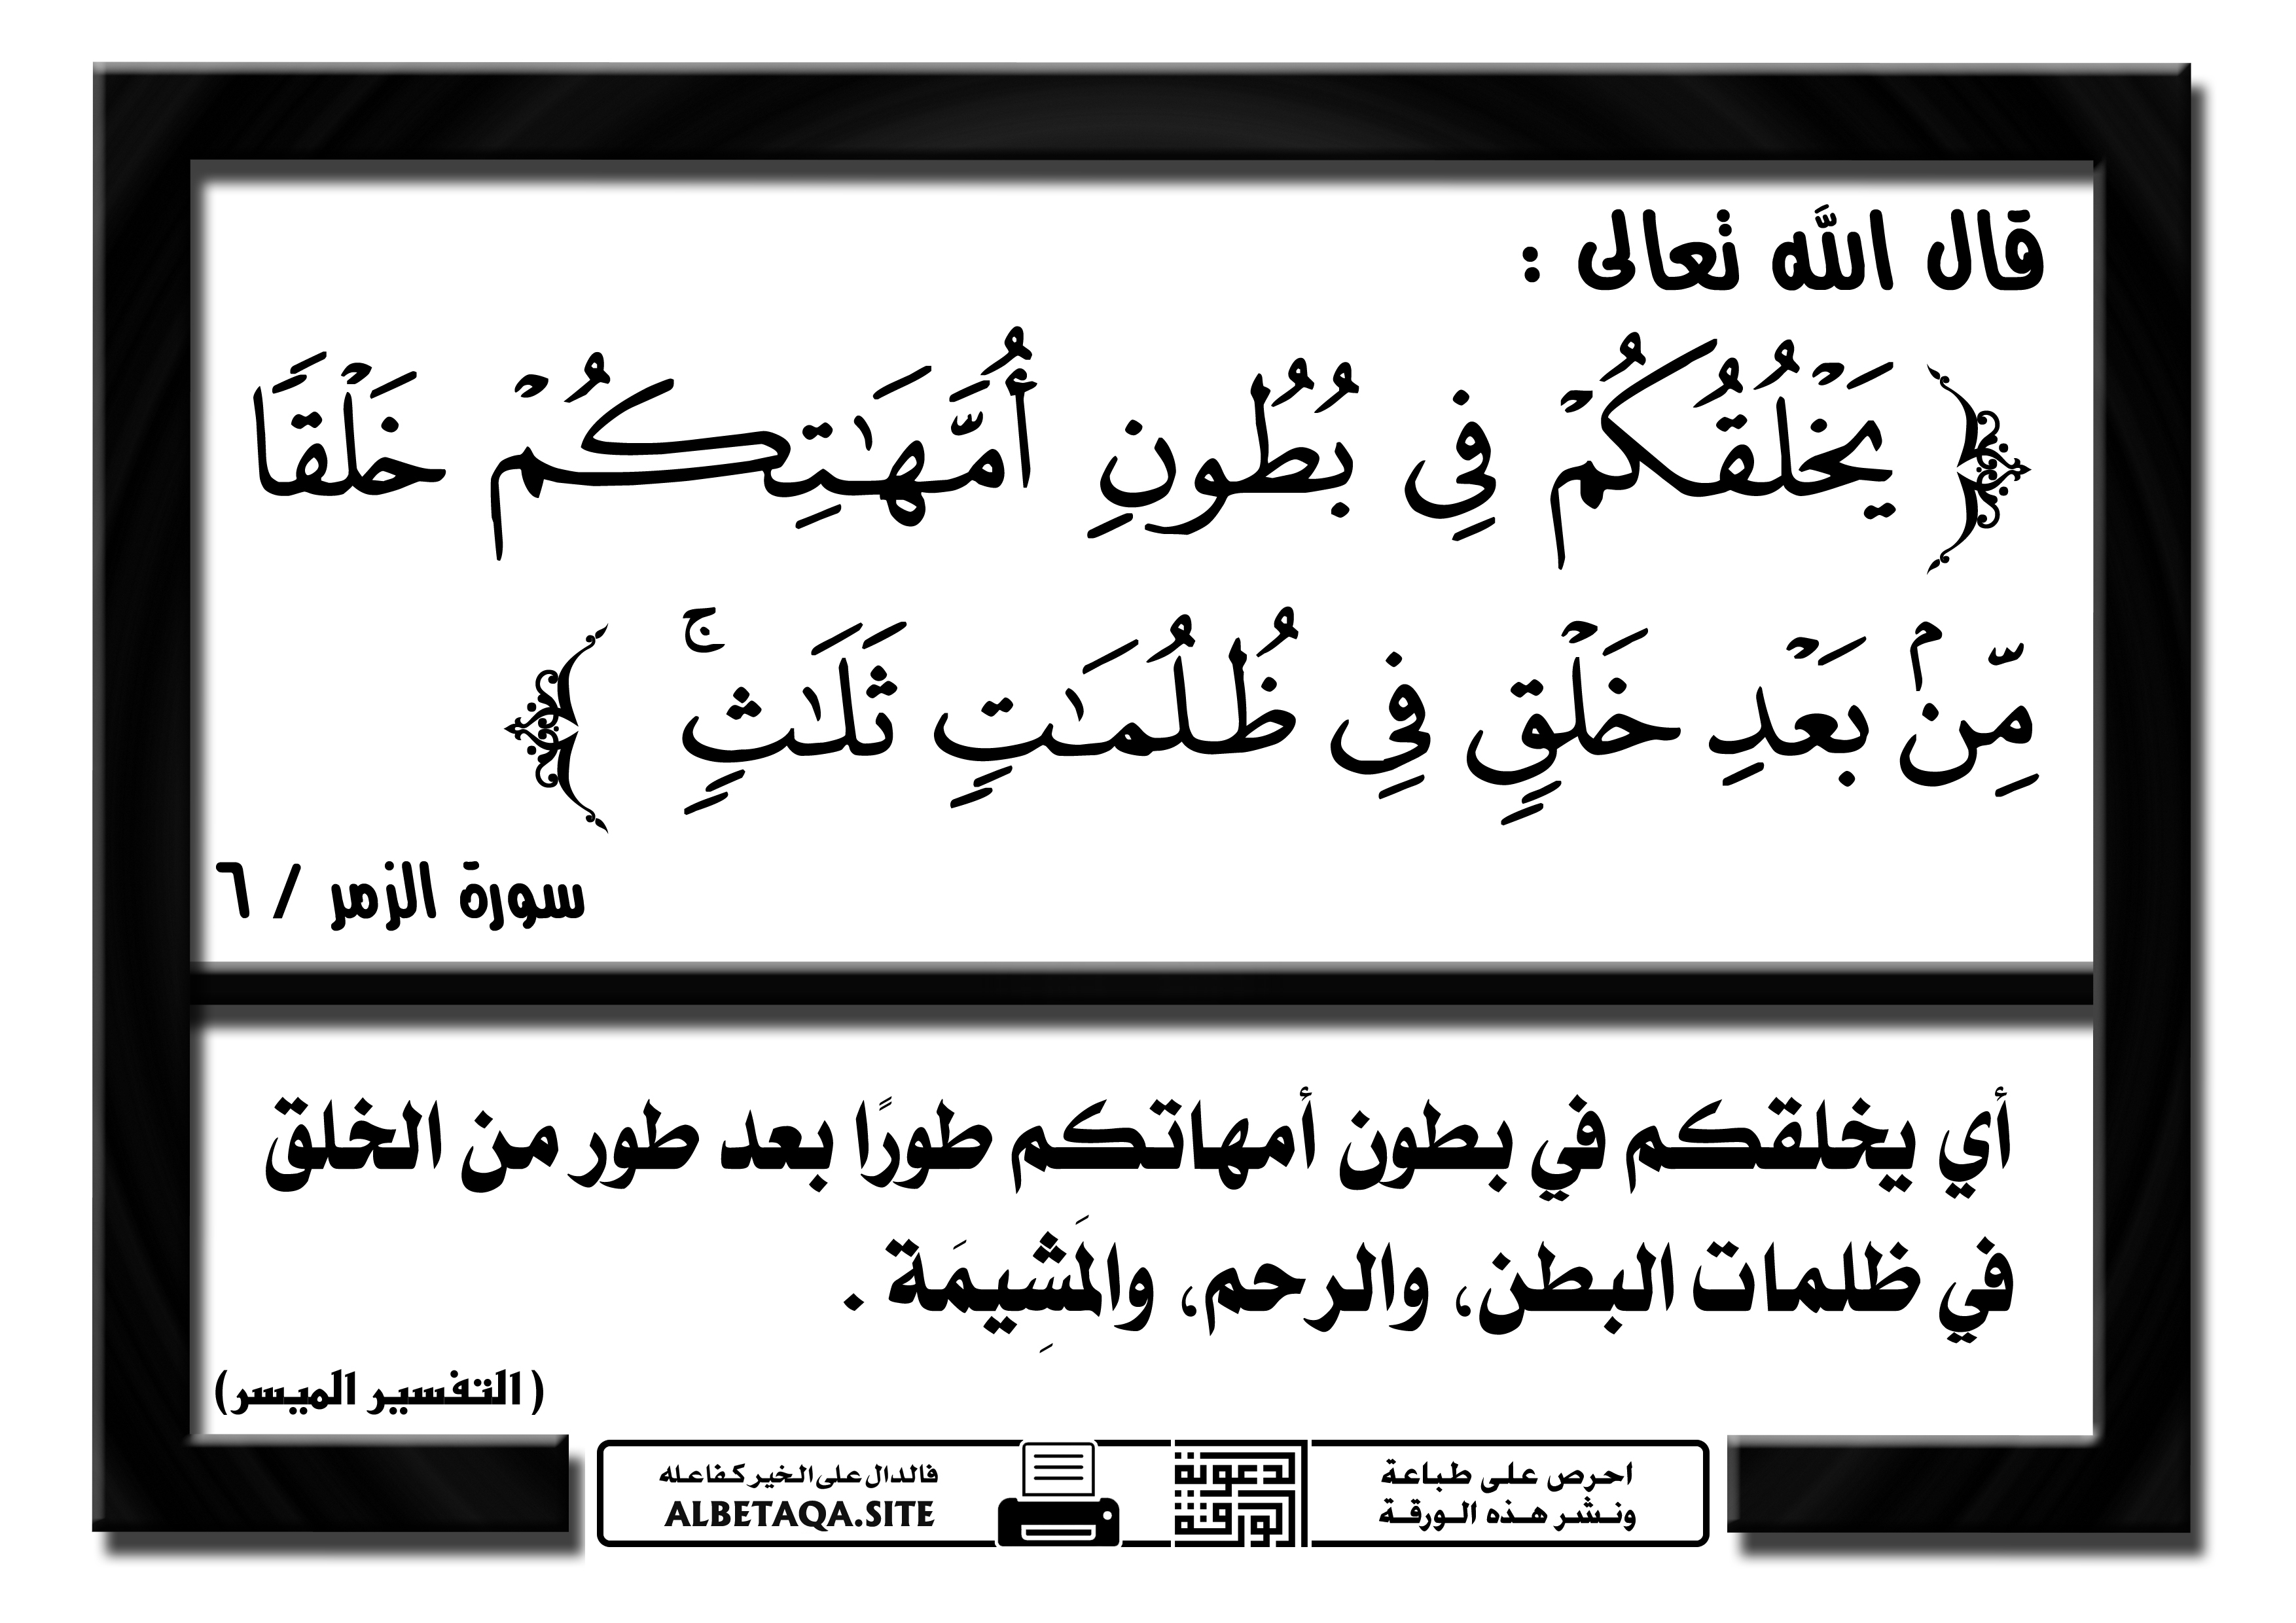 قال الله تعالى :
﴿ يَخْلُقُكُمْ فِي بُطُونِ أُمَّهَٰتِكُمْ خَلْقًا
مِّنۢ بَعْدِ خَلْقٍ فِي ظُلُمَٰتٍ ثَلَٰثٍ ۚ ﴾
سورة الزمر / ٦
أي يخلقكم في بطون أمهاتكم طورًا بعد طور من الخلق
في ظلمات البطن، والرحم، والمَشِيمَة .
( التفسير الميسر)
احرص على طباعة
ونشر هذه الورقة
لدعوية
الورقة
فالدال على الخير كفاعله
ALBETAQA.SITE